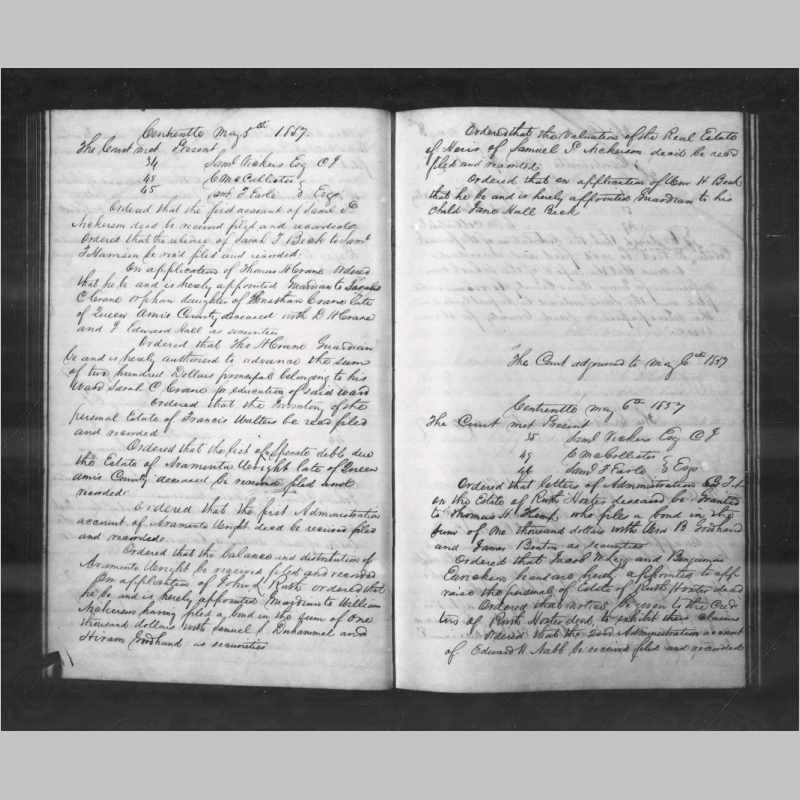 Centreville May 5th 1857.
The Court met Present
34 Saml Vickers Esq C J
45 C McCollister
45 Saml T Earle } Esqs
Ordered that the first account of Saml P
Nickerson decd be received filed and recorded
Ordered that the release of Saml T Beck to Saml
T Harrison be rec'd filed and recorded.
On application of Thomas H Crane Ordered
that he be and is hereby appointed Guardian to Sarah
C Crane orphan daughter of Jonathan Crane late
of Queen Anns County deceased with D H Crane
and T Edward Hall as securities
Ordered that Tho H Crane Guardian
be and is hereby authorised to advance the sum
of two hundred Dollars principal belonging to his
Ward Sarah C Crane for education of said Ward
Ordered that the Inventory of the
personal Estate of Francis Walters be read filed
and recorded
Ordered that the first of Sperate debts due
the Estate of Araminta Wright late of Queen
Anns County deceased be received filed and
recorded.
Ordered that the first Administration
account of Araminta Wright decd be received filed
and recorded.
Ordered that the balance and distribution of
Araminta Wright be received filed and recorded
On application of John L Ruth ordered that
he be and is hereby appointed Guardian to William
Nickerson having filed a bond in the sum of One
thousand dollars with Samuel J. Duhammel and
Hiram Godhand as securities
Ordered that the valuation of the Real Estate
of Heirs of Samuel P Nickerson decd be read
filed and recorded.
Ordered that on application of Wm H Beck
that he be and is hereby appointed Guardian to his
Child Jane Hall Beck
The Court adjourned to May 6th 1857
Centreville May 6th 1857
The Court met Present
35 Saml Vickers Esq C J
45 C McCollister
46 Saml T Earle } Esqs
Ordered that letters of Administration
on the Estate of Ruth Hoxter deceased be Granted
to Thomas H Kemp who files a bond in the
sum of One thousand dollars with Wm B Godhand
and James Benton as securities
Ordered that Jacob W Legg and Benjamin
and are hereby appointed to app-
raise the personal of Estate of Ruth Hoxter decd
Ordered that notice be given to the Cred
tors of Ruth Hoxter decd. to exhibit their claims
Ordered that the 22nd Administration account
of Edward H. Nabb be received filed and recorded